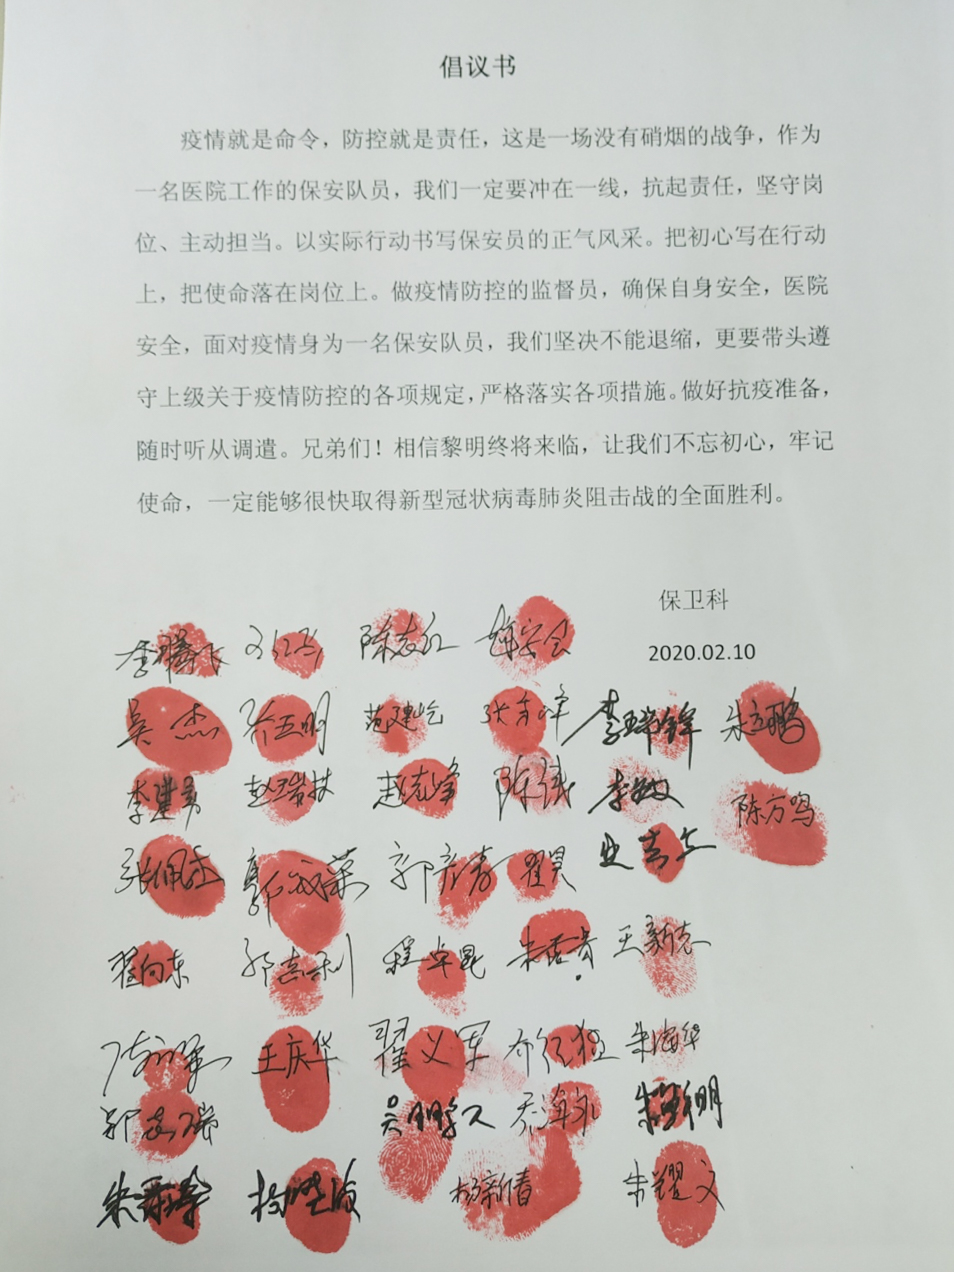 倡议书
疫情就是命令，防控就是责任，这是一场没有硝烟的战争，作为
一名医院工作的保安队员，我们一定要冲在一线，抗起责任，坚守岗
位、主动担当。以实际行动书写保安员的正气风采。把初心写在行动
上，把使命落在岗位上。做疫情防控的监督员，确保自身安全，医院
安全，面对疫情身为一名保安队员，我们坚决不能退缩，更要带头遵
守上级关于疫情防控的各项规定，严格落实各项措施。做好抗疫准备，
随时听从调遣。兄弟们！相信黎明终将来临，让我们不忘初心，牢记
使命，一定能够很快取得新型冠状病毒肺炎阻击战的全面胜利。
保卫科
2020.02.10
李腾飞 陈志红
吴杰 乔五明 范建屹 张青峰 李瑞锋 朱立鹏
赵瑞枝 赵志峰 陈诚 李敏 陈方鸣
张佩杰 郭文荣 郭彦涛 翟昊 史吉立
翟向东 郭志利 程卓昆 王新志
王庆华 翟义军 朱海华
郭志瑞 乔海永
杨新春 朱耀文